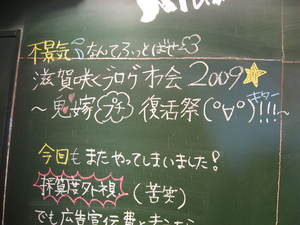 不景気なんてふっとばせ〜3
滋賀咲くブログオフ会2009
〜鬼嫁プチ復活祭(°∀°)キター!!!〜
今回もまたやってしまいました!
採算度外視!(苦笑)
でも広告宣伝費と